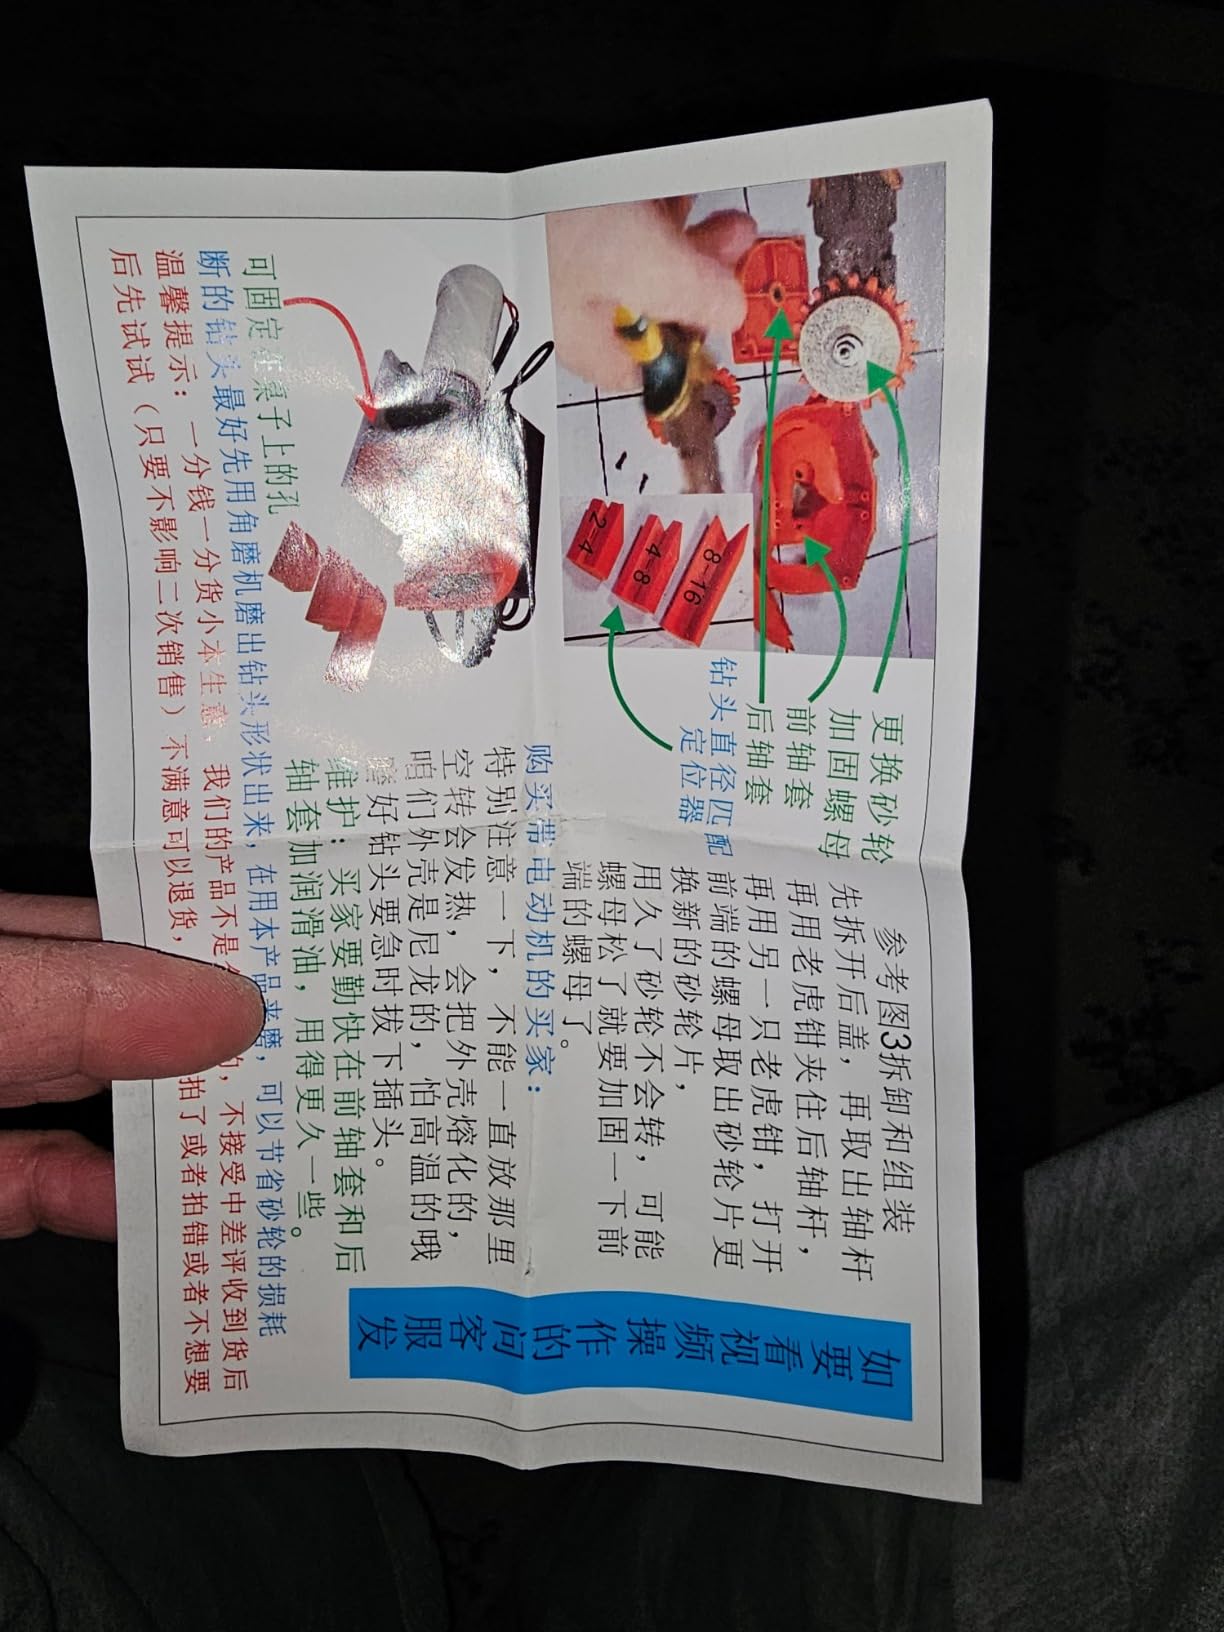 更换砂轮
加固螺母
前轴套
后轴套
钻头直径匹配
定位器
2-4
4-8
8-16
参考图3拆卸和组装
先拆开后盖，再取出轴杆
再用老虎钳夹住后轴杆，
再用另一只老虎钳，打开
前端的螺母取出砂轮片更
换新的砂轮片，
用久了砂轮不会转，可能
螺母松了就要加固一下前
端的螺母了。
购买带电动机的买家：
特别注意一下，不能一直放那里
空转会发热，会把外壳熔化的，
咱们外壳是尼龙的，怕高温的哦
磨好钻头要急时拔下插头。
维护：买家要勤快在前轴套和后
轴套加润滑油，用得更久一些。
如要看视频操作的问客服发
可固定在桌子上的孔
断的钻头最好先用角磨机磨出钻头形状出来，在用本产品来磨，可以节省砂轮的损耗
温馨提示：一分钱一分货小本生意，我们的产品不是 的，不接受中差评收到货后
后先试试（只要不影响二次销售）不满意可以退货， 拍了或者拍错或者不想要